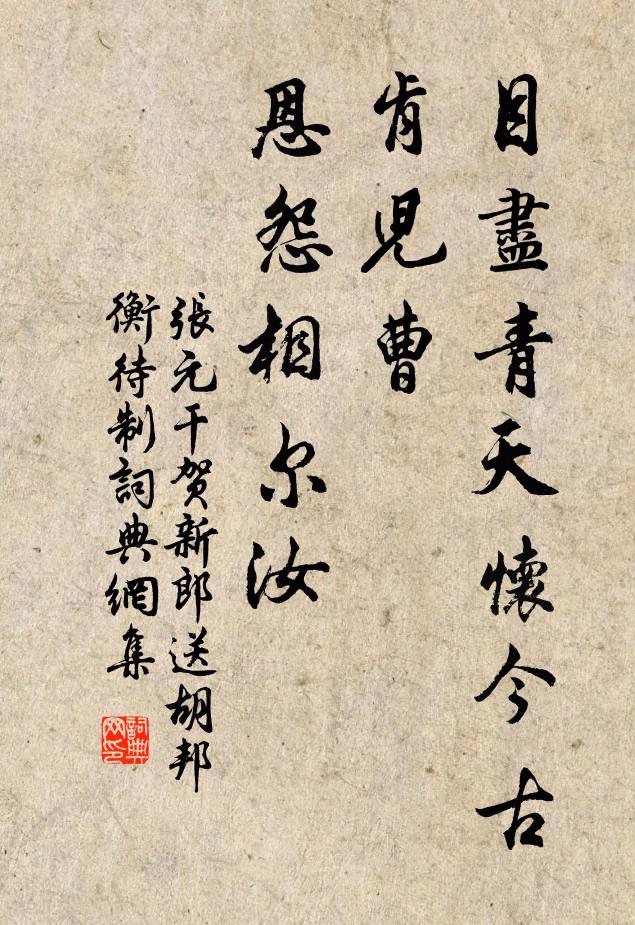 目盡青天懷今古
肯兒曹
恩怨相尔汝
張元干贺新郎送胡邦
衡待制詞典網集
詞典
网印